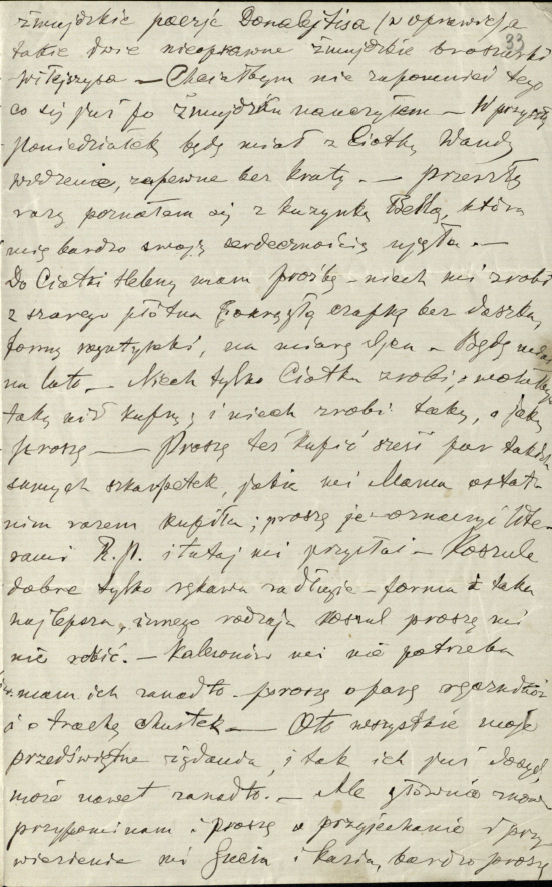 żmujdzkie poezje Donalejtisa (w oprawie) a
33
takie dwie nieoprawne żmujdzkie broszurki
Wilejszysa — Chciałbym nie zapomnieć tego
co się już po żmujdzku nauczyłem — W przyszły
poniedziałek będę miał z Ciotką Wandą
widzenie, zapewne bez kraty. — przeszłą
razą poznałem się z kuzynką Bellą, która
mię bardzo swoją serdecznością ujęła. —
Do Ciotki Heleny mam prośbę – niech mi zrobi
z szarego płótna okrągłą czapkę bez daszka,
formy myutyski, na miarę Ojca – Będę miał
na lato. — Niech tylko Ciotka zrobi, a
taką niż kupną; i niech zrobi taką, o jaką
proszę —— Proszę też kupić sześć par takich
samych skarpetek, jakie mi Mama ostat-
nim razem kupiła; proszę je oznaczyć lite-
rami R.P. i tutaj mi przysłać — Koszule
dobre tylko rękawa za długie – forma taka
najlepsza, innego rodzaju koszul proszę mi
nie robić. — Kalesonów mi nie potrzeba
mam ich zanadto – proszę o parę ręczników
i o trochę chustek — Oto wszystkie moje
przedświątne żądania, i tak ich już dosyć,
może nawet zanadto. — Ale głównie znowu
przypominam i proszę o przyjechanie i przy-
wiezienie mi Gucia i Kazia, bardzo proszę